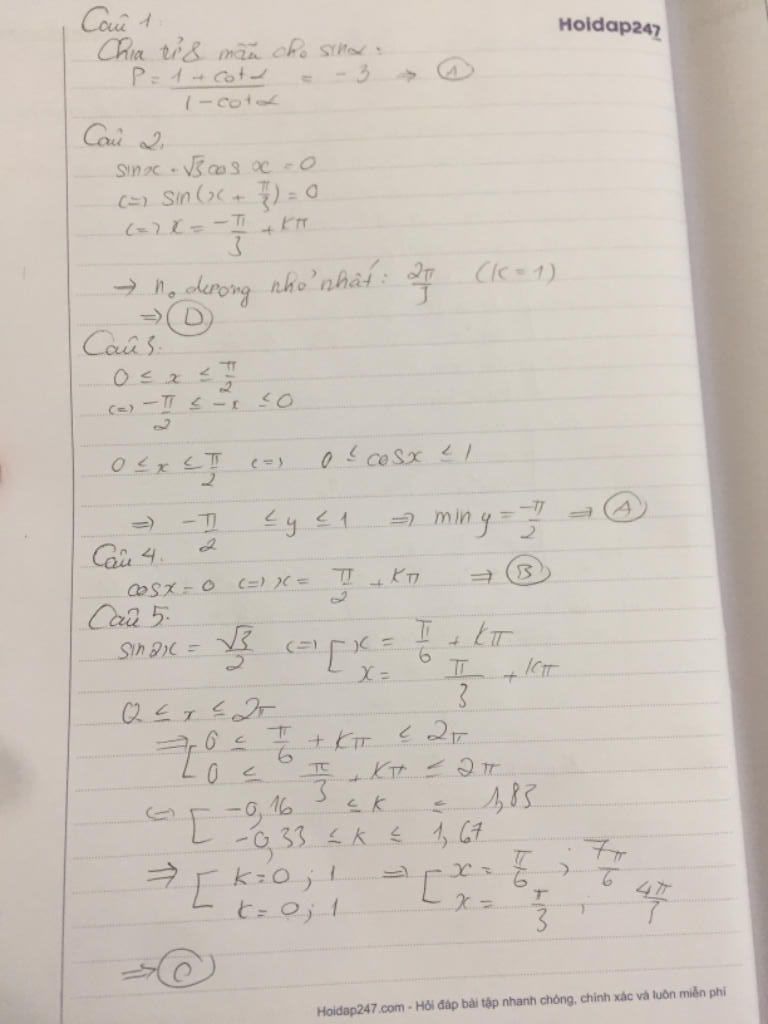 Câu 1:
Hoidap247
Chia tử & mẫu cho sinα:
P = (1 + cotα)/(1 - cotα) = -3 => (A)
Câu 2.
sinx + √3 cos x = 0
<=> sin(x + π/3) = 0
<=> x = -π/3 + kπ
→ n₀ dương nhỏ nhất: 2π/3 (k=1)
=> (D)
Câu 3.
0 ≤ x ≤ π/2
<=> -π/2 ≤ -x ≤ 0
0 ≤ x ≤ π/2 <=> 0 ≤ cosx ≤ 1
=> -π/2 ≤ y ≤ 1 => min y = -π/2 => (A)
Câu 4.
cosx = 0 <=> x = π/2 + kπ => (B)
Câu 5.
sin2x = √3/2 <=> [ x = π/6 + kπ
x = π/3 + kπ
0 ≤ x ≤ 2π
=> [ 0 ≤ π/6 + kπ ≤ 2π
0 ≤ π/3 + kπ ≤ 2π
<=> [ -0,16 ≤ k ≤ 1,83
-0,33 ≤ k ≤ 1,67
=> [ k=0 ; 1 => [ x = π/6 ; 7π/6
k=0 ; 1 x = π/3 ; 4π/3
=> (C)
Hoidap247.com - Hỏi đáp bài tập nhanh chóng, chính xác và luôn miễn phí